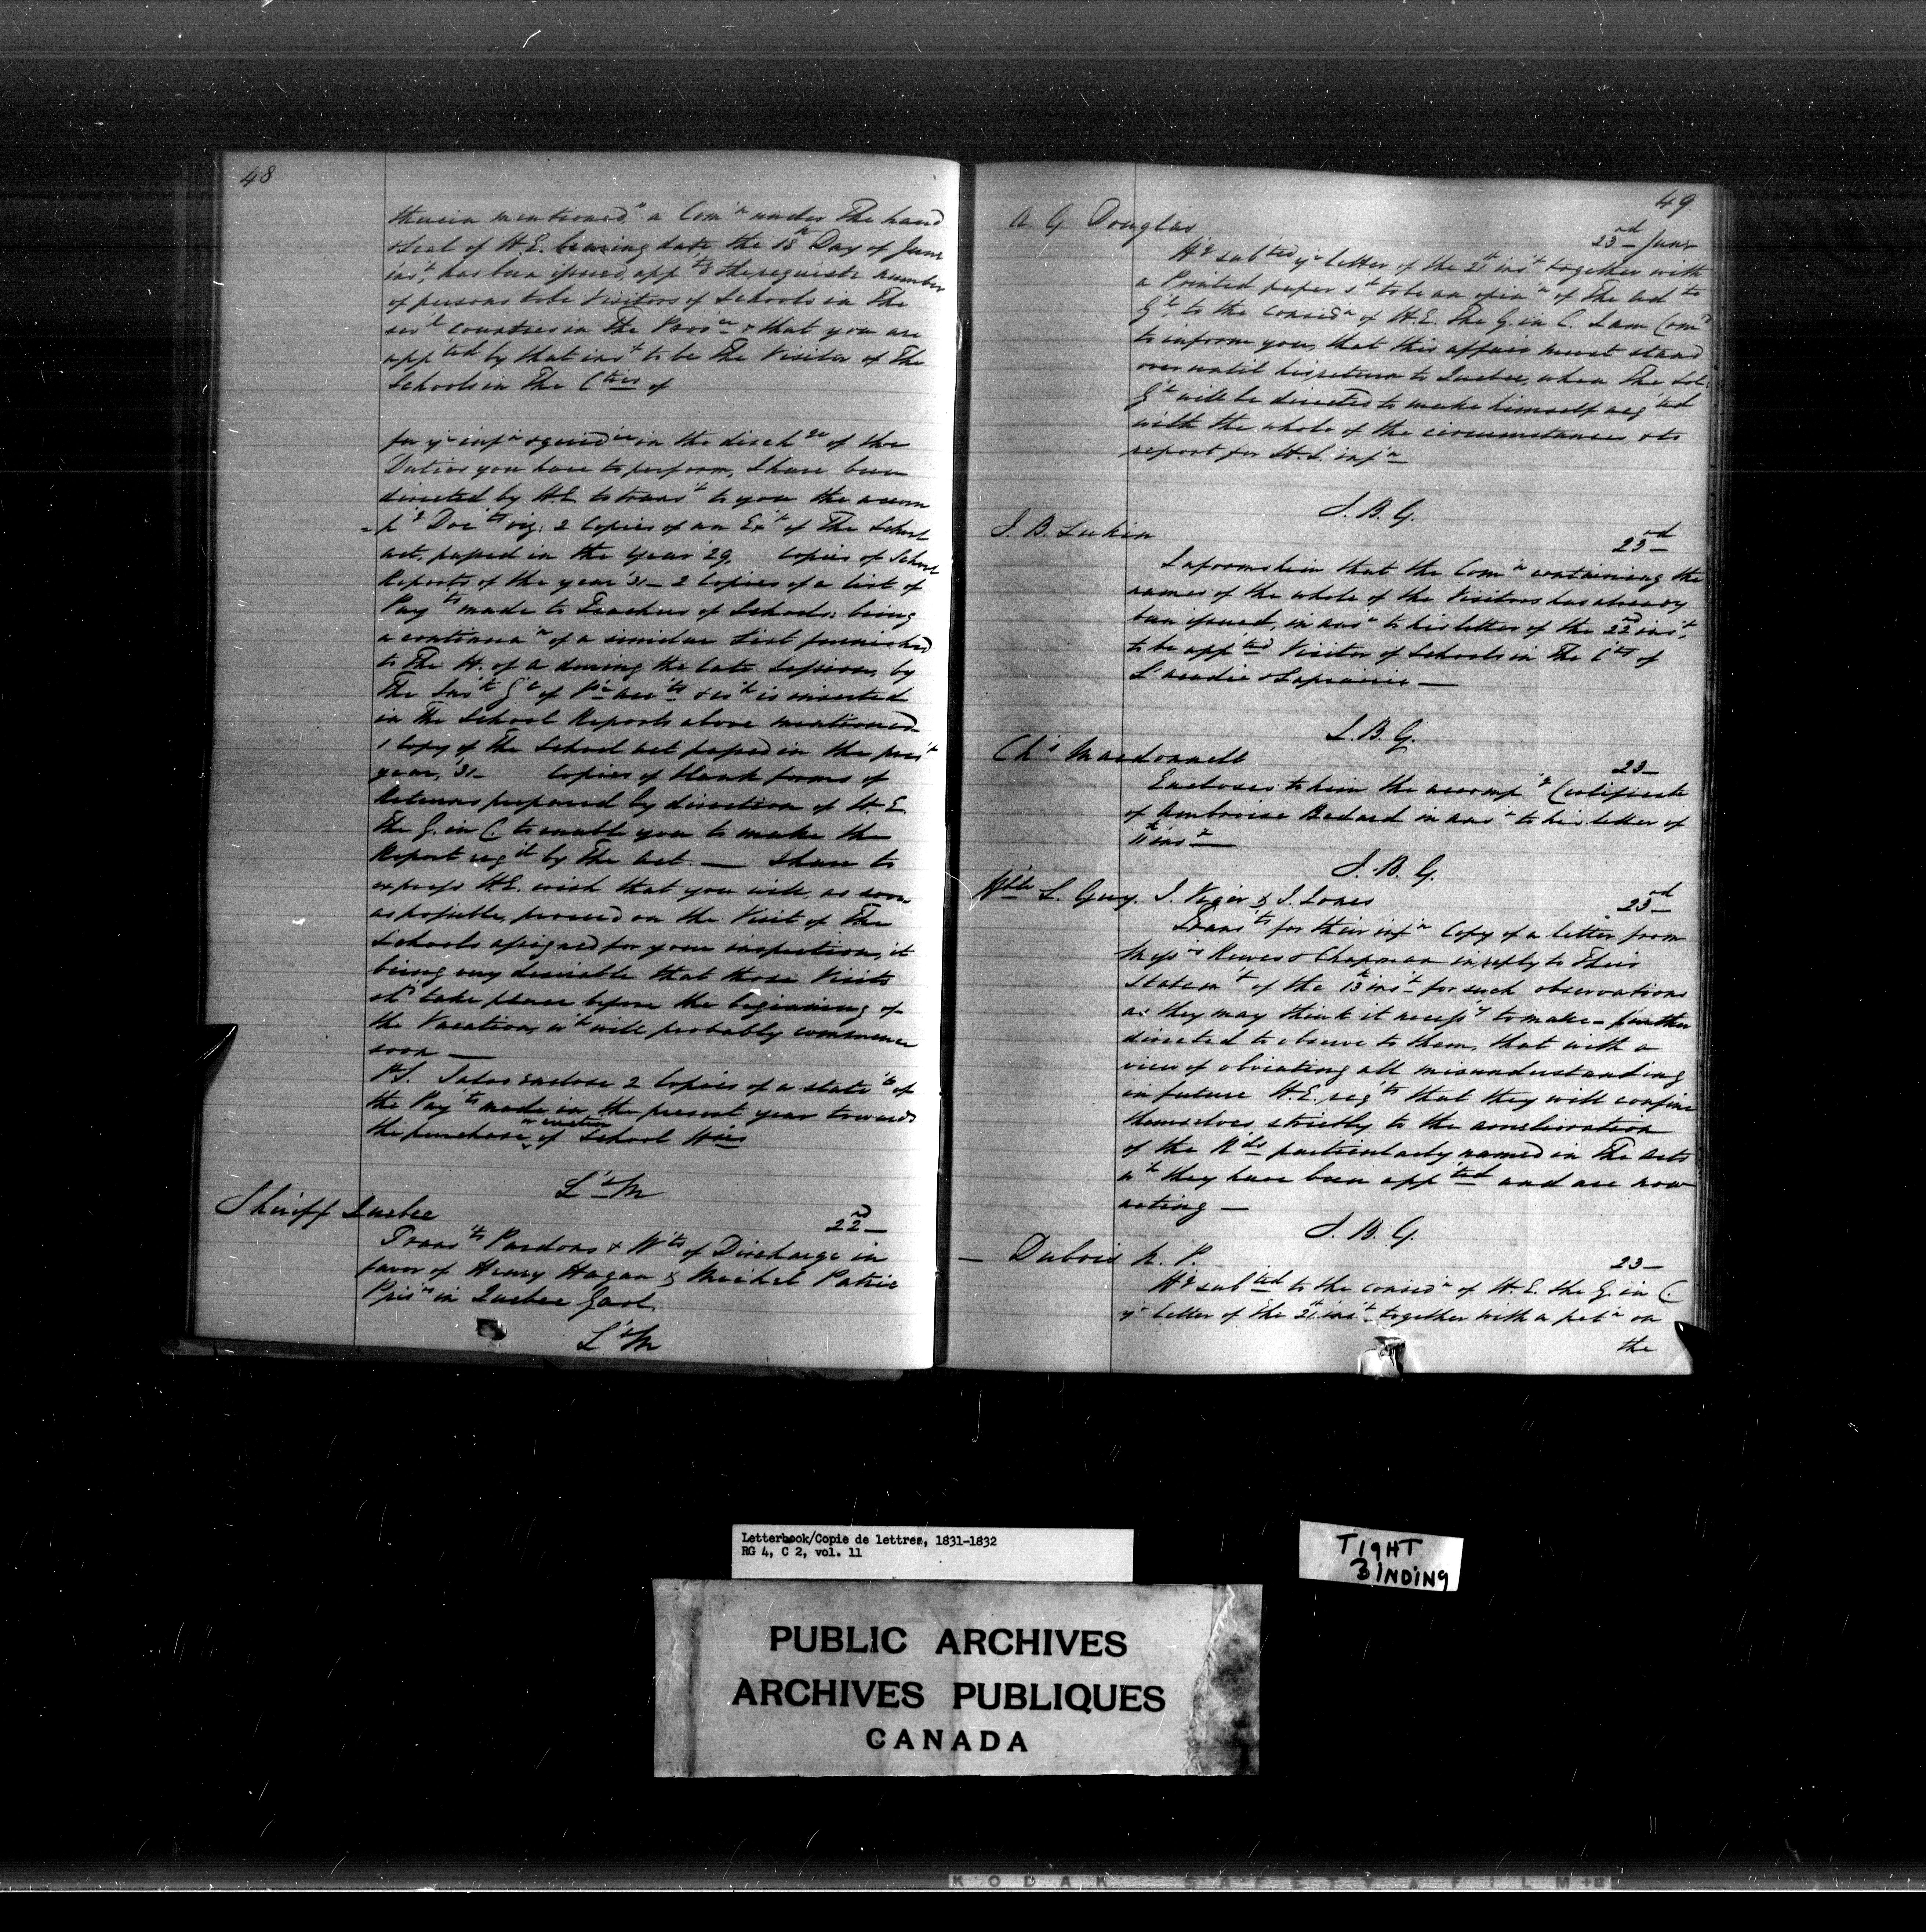 48
therein mentioned" a Com^n under The hand
& Seal of H.E. bearing date, the 18^th Day of June
ins^t, has been issued, app^tg the requisite number
of persons to be Visitors of Schools in The
sev^l counties in The Prov^ce & that you are
app^ted by that ins^t to be The Visitor of The
Schools in The C^ties of
for y^r inf^n & guid^ce in the disch^ge of the
Duties you have to perform, I have been
directed by H.E. to trans^t to you the accom
=p^g Doc^ts viz: 2 Copies of an Ex^t of The School
act, passed in the year '29, Copies of School
Reports of the year '31 – 2 Copies of a list of
Pay^ts made to Teachers of Schools: being
a continua^n of a similar List furnished
to The H. of A during the late Session, by
The Ins^r G^l of P^c acc^ts & w^h is inserted
in The School Reports above mentioned
1 Copy of The School act passed in the pres^t
year, '31 – Copies of blank forms of
Returns prepared by direction of H.E.
The G. in C. to enable you to make the
Report req^d by The Act. — I have to
express H.E. wish that you will, as soon
as possible, proceed on the Visit of The
Schools assigned for your inspection, it
being very desirable that those Visits
sh^d take place before the beginning of
the Vacation, w^h will probably commence
soon —
P.S. I also enclose 2 Copies of a state^t of
the Pay^ts made in the present year towards
or erection
the purchase of School H^ses
L^t M
Sheriff Quebec
22^nd –
Trans^ts Pardons & W^ts of Discharge in
favor of Henry Hagan & Michel Patrie
Pris^rs in Quebec Gaol
L^t M
49.
A. G. Douglas
23^rd June
H^g sub^ted y^r letter of the 21^st ins^t together with
a Printed paper s^d to be an opin^n of The Ad^te
G^l to the consid^n of H.E. The G. in C. I am Com^d
to inform you, that this affair must stand
over until his return to Quebec, when The Sol:
G^l will be directed to make himself acq^ted
with the whole of the circumstances & to
report for H.E. inf^n
J. B. G.
J. B. Lukin
23^rd –
Informs him that the Com^n containing the
names of the whole of the Visitors has already
been issued, in ans^r to his letter of the 22^nd ins^t,
to be app^ted Visitor of Schools in The C^ties of
L'acadie & Laprairie —
J. B. G.
Ch^s Macdonnell
23 –
Encloses to him the accomp^g Certificate
of Ambroise Bedard in ans^r to his letter of
11^th ins^t —
J. B. G.
H^ble L. Guy. J. Viger & J. Jones
23^rd –
Trans^ts for their inf^n Copy of a letter from
Mess^rs Rewes & Chapman in reply to Their
Statem^t of the 13^th ins^t for such observations
as they may think it necess^y to make – further
directed to observe to them, that with a
view of obviating all misunderstanding
in future H.E. req^ts that they will confine
themselves strictly to the amelioration
of the R^ds particularly named in The acts
w^h they have been app^ted and are now
acting —
J. B. G.
— Dubois N. P.
23 –
H^g sub^ted to the consid^n of H.E. the G. in C.
y^r letter of the 21^st ins^t together with a pet^n on
the
Letterbook/Copie de lettres, 1831-1832
RG 4, C 2, vol. 11
TIGHT
BINDING
PUBLIC ARCHIVES
ARCHIVES PUBLIQUES
CANADA
KODAK SAFETY FILM